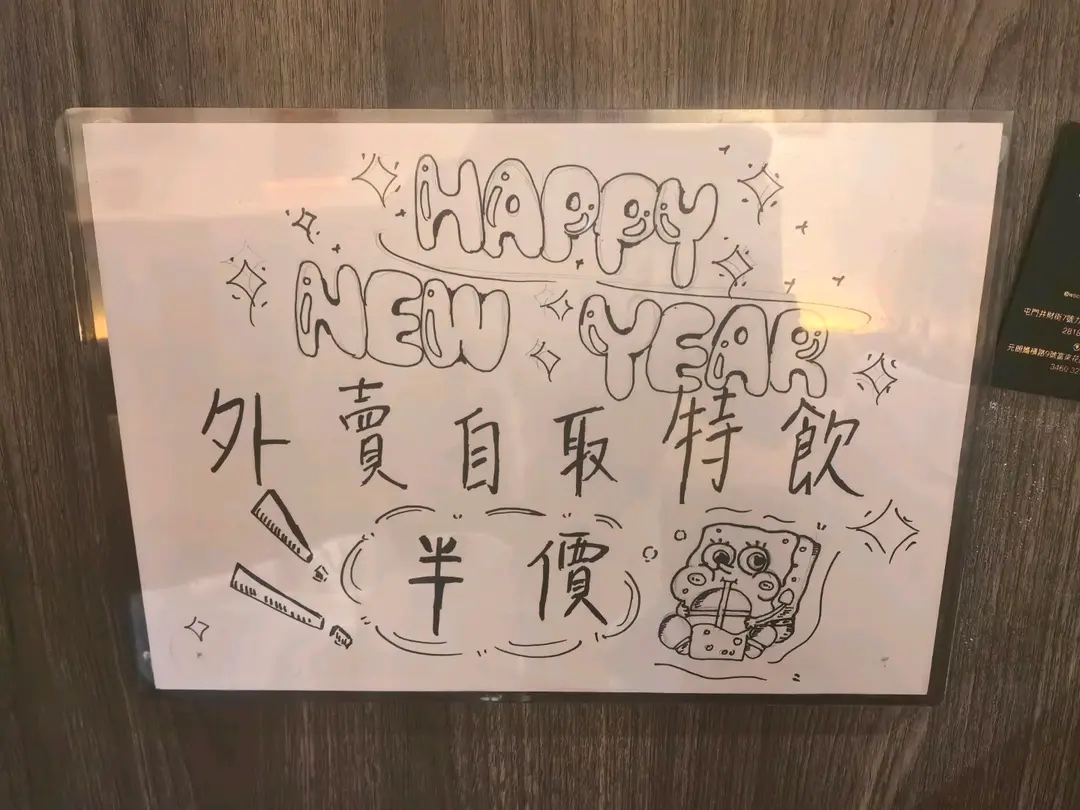 HAPPY
NEW YEAR
外賣自取特飲
半價
屯門井財街7號
2818
元朗媽橫路9號富來花
3460 32